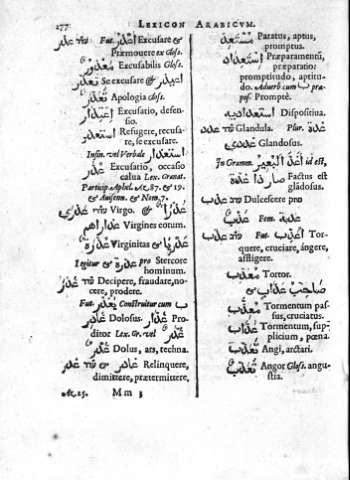 277 LEXICON ARABICUM.
عذر τῦ Fut. اعذر Excusare &
Præmovere ex Glos.
معذور Excusabilis Gloss.
اعتذر Se excusare &
تعذر Apologia Glos.
اعتذار Excusatio, defensio.
استعذر Refugere, recusare, se excusare.
Infin. vel Verbale استعذار
عذر Excusatio, occasio
calua Lex. Granat.
Particip. Aphel. Ac. 87. & 19.
& Auisenn. & Nom. 7.
عذرا & عذري τῦ Virgo.
عذاراهم Virgines eorum.
عذريا & عذرة Virginitas
Legitur & عذرة pro Stercore
hominum.
غدر τῦ Decipere, fraudare, nocere, prodere.
Fut. يغدر Construitur cum ب
غادر Dolosus. غدار Proditor Lex. Gr. vel
غدر Dolus, ars, techna.
غادر τῦ Relinquere,
dimittere, prætermittere,
Ac. 25. Mm 3
مستعد Paratus, aptus,
promptus.
استعداد Præparamentū,
præparatio:
promptitudo, aptitudo. Adverb. cum ب præpos.
Promptè.
استعدادية Dispositiua.
غدد τῦ Glandula. Plur. غدة
غددي Glandosus.
In Gramm. اغد البعير id est,
صار ذا غدة Factus est
glādosus.
عذب τῦ Dulcescere pro
عذبة Fem. عذب
عذب τῦ Fut. يعذب Torquere, cruciare, āngere,
affligere.
معذب Tortor.
صاحب عذاب &
معذب Tormentum passus, cruciatus.
عذاب Tormentum, supplicium, pœna.
تعذب Angi, arctari.
تعذب Angor Glos. angustia.